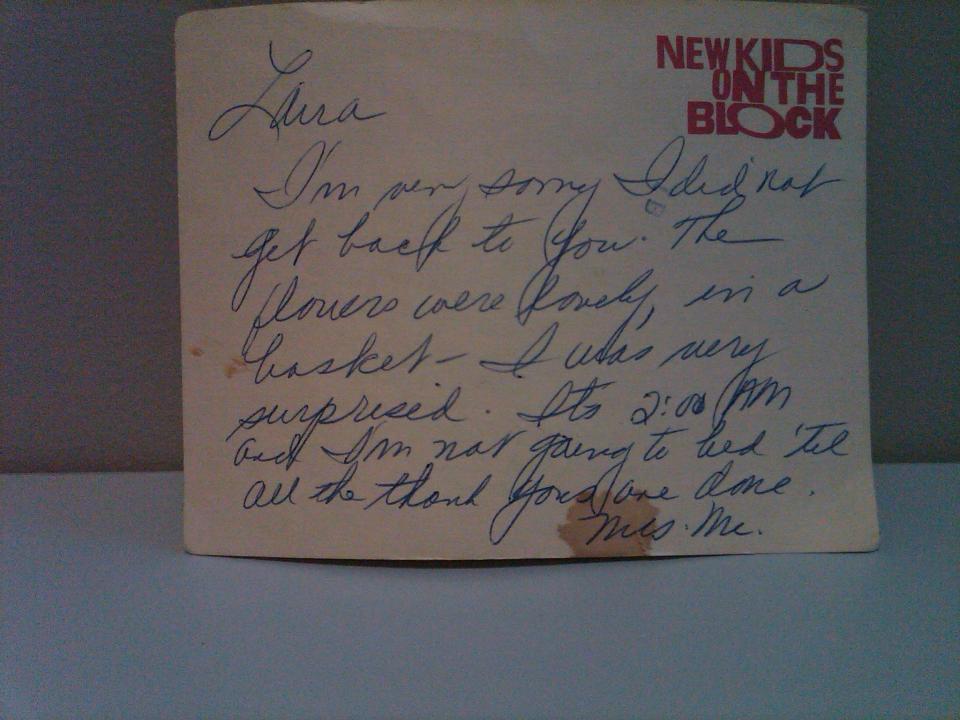 NEW KIDS
ON THE
BLOCK
Laura
I'm very sorry I did not
get back to you. The
flowers were lovely, in a
basket - I was very
surprised. Its 2:00 AM
and I'm not going to bed 'til
all the thank yous are done.
Mrs. Mc.